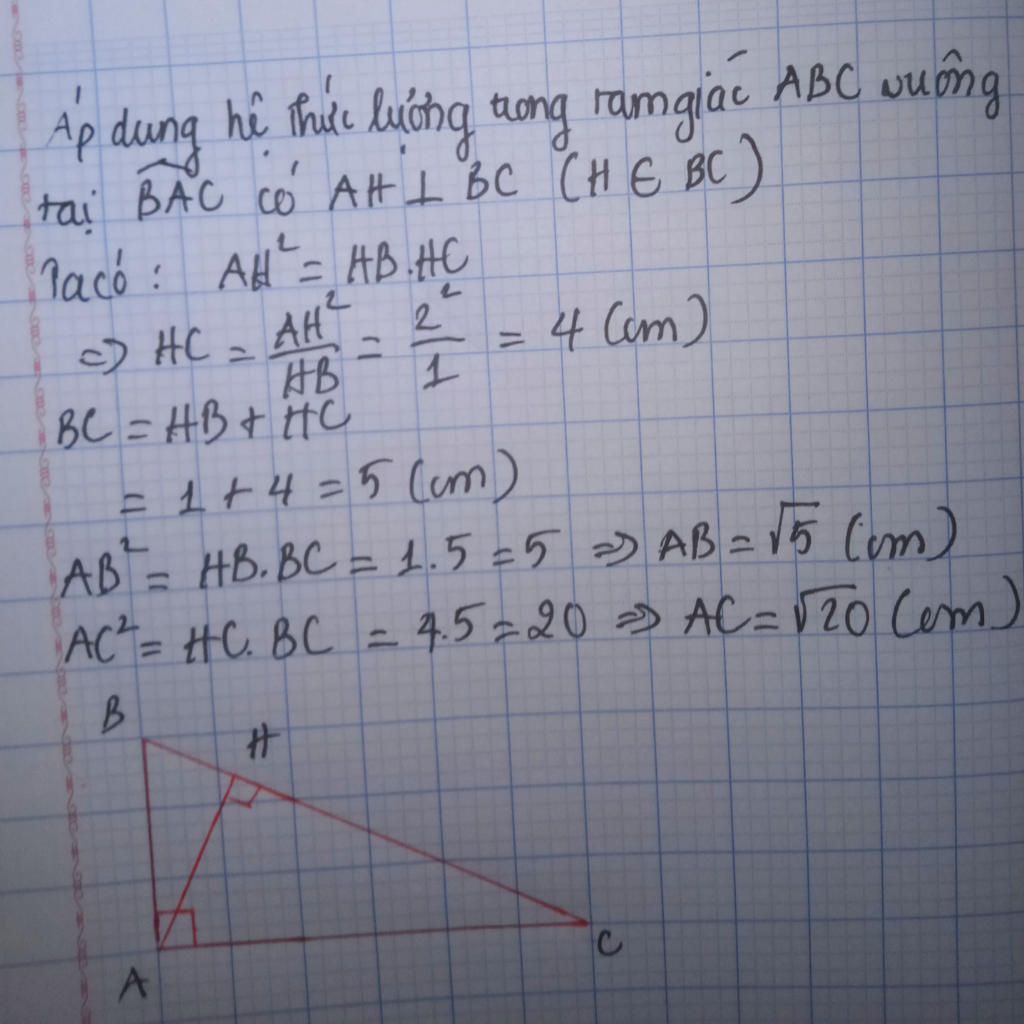 Áp dụng hệ thức lượng trong tam giác ABC vuông
tại \widehat{BAC} có AH ⊥ BC (H ∈ BC)
Ta có : AH² = HB.HC
=> HC = \frac{AH²}{HB} = \frac{2²}{1} = 4 (cm)
BC = HB + HC
= 1 + 4 = 5 (cm)
AB² = HB.BC = 1.5 = 5 => AB = √5 (cm)
AC² = HC.BC = 4.5 = 20 => AC = √20 (cm)
B
H
C
A